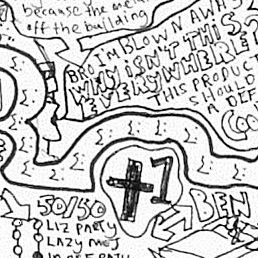 because the
off the building
BRO I'M BLOWN AWA
WHY ISN'T THIS
EVERYWHERE?
THIS PRODUCT
SHOULD
A DEF
COO
1
50/50
BEN
LIZ PARTY
LAZY